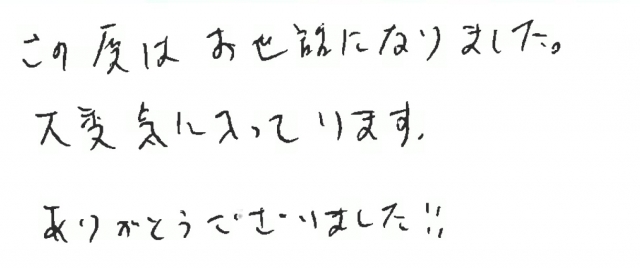 この度はお世話になりました。
大変気に入っております。
ありがとうございました!!